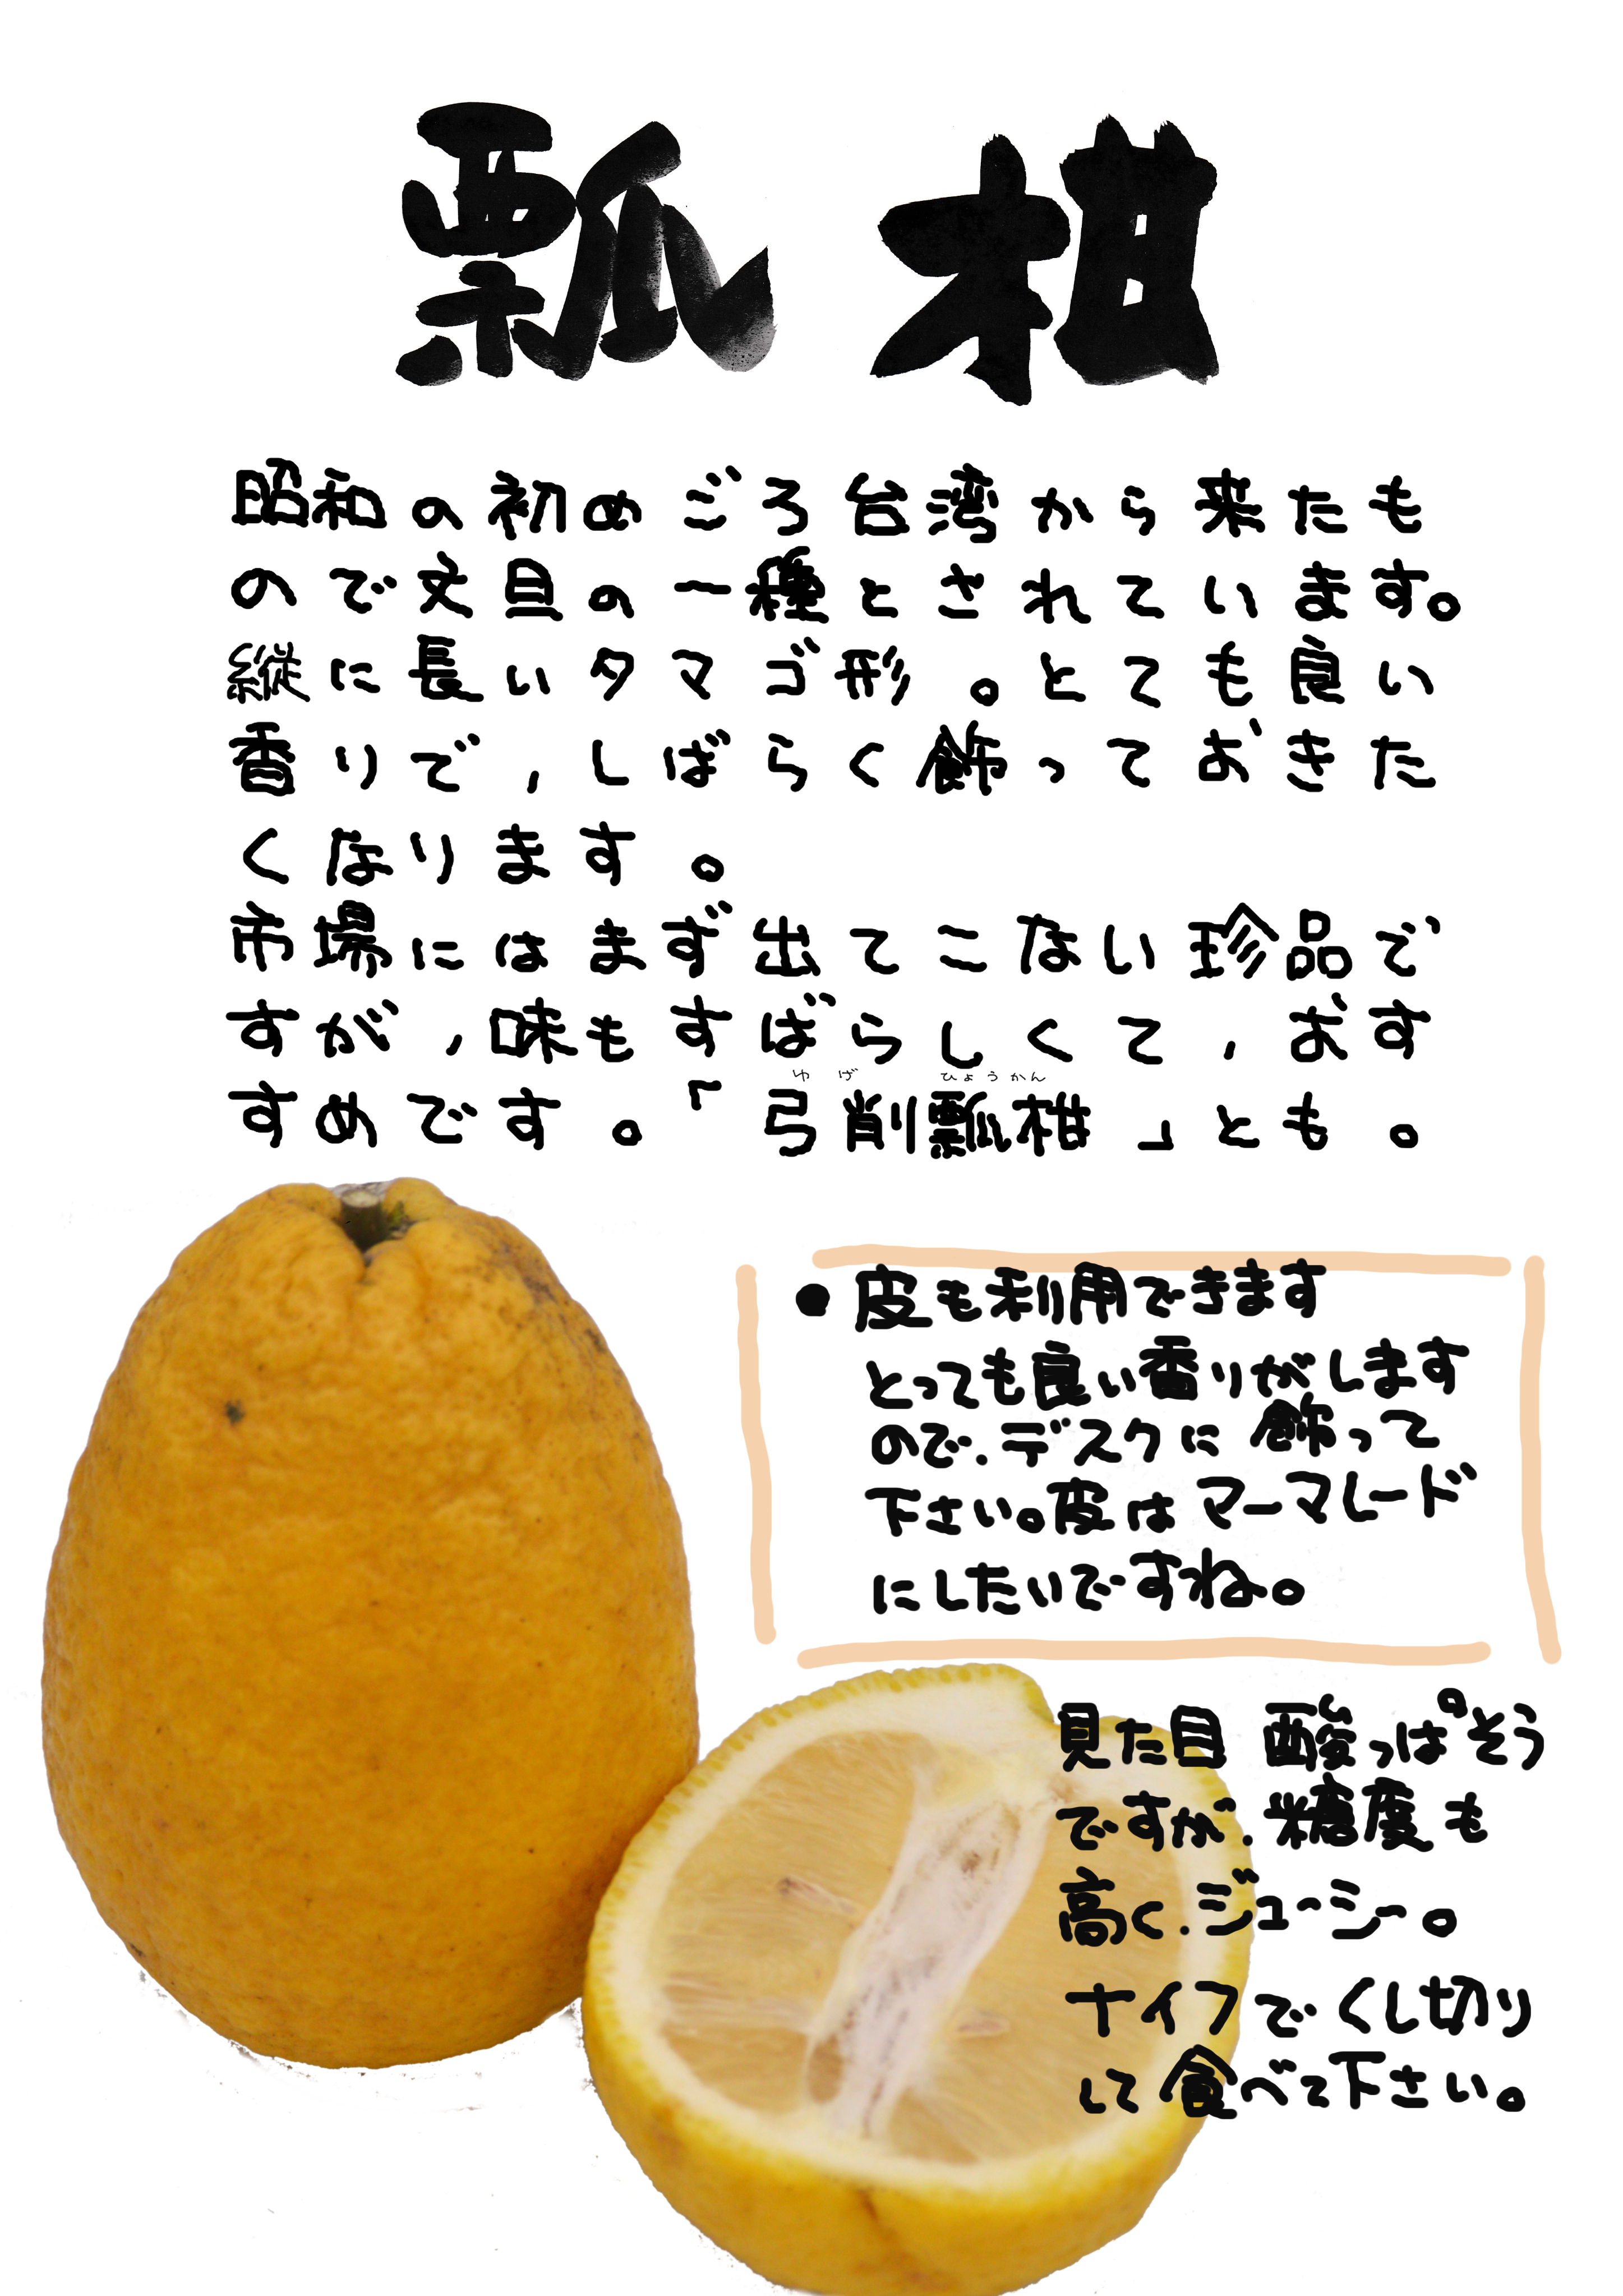 瓢柑
昭和の初めごろ台湾から来たも
ので文旦の一種とされています。
縦に長いタマゴ形。とても良い
香りで，しばらく飾っておきた
くなります。
市場にはまず出てこない珍品で
すが，味もすばらしくて，おす
ゆげ ひょうかん
すめです。「弓削瓢柑」とも。
●皮も利用できます
とっても良い香りがします
ので.デスクに飾って
下さい。皮はマーマレード
にしたいですね。
見た目 酸っぱそう
ですが.糖度も
高く.ジューシー。
ナイフでくし切り
して食べて下さい。